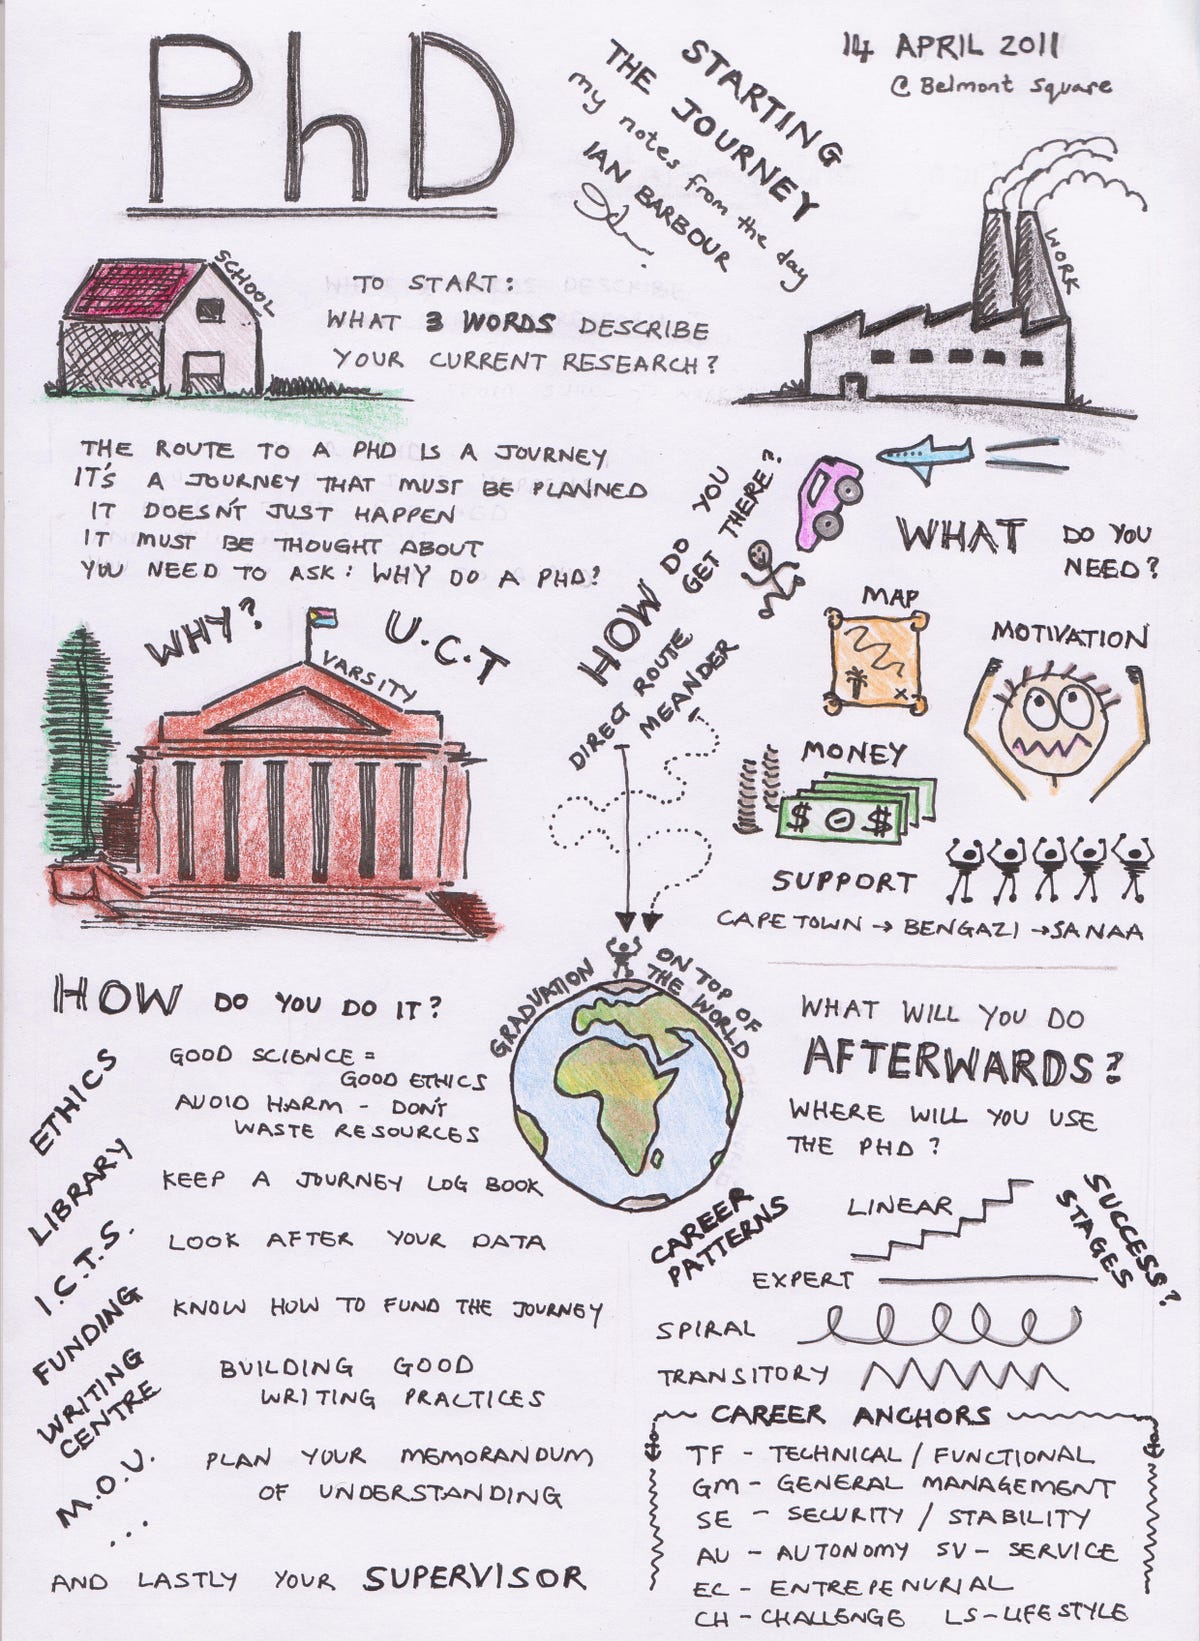 PhD
STARTING
THE JOURNEY
my notes from the day
IAN BARBOUR
14 APRIL 2011
@ Belmont Square
SCHOOL
TO START:
WHAT 3 WORDS DESCRIBE
YOUR CURRENT RESEARCH?
WORK
THE ROUTE TO A PHD IS A JOURNEY
IT'S A JOURNEY THAT MUST BE PLANNED
IT DOESN'T JUST HAPPEN
IT MUST BE THOUGHT ABOUT
YOU NEED TO ASK: WHY DO A PHD?
WHY?
U.C.T
VARSITY
HOW DO YOU
GET THERE?
DIRECT ROUTE
MEANDER
WHAT DO YOU
NEED?
MAP
MOTIVATION
MONEY
$ $
SUPPORT
CAPE TOWN → BENGAZI → SANAA
GRADUATION
ON TOP OF
THE WORLD
HOW DO YOU DO IT?
ETHICS
GOOD SCIENCE =
GOOD ETHICS
AVOID HARM - DON'T
WASTE RESOURCES
LIBRARY
KEEP A JOURNEY LOG BOOK
I.C.T.S.
LOOK AFTER YOUR DATA
FUNDING
KNOW HOW TO FUND THE JOURNEY
WRITING
CENTRE
BUILDING GOOD
WRITING PRACTICES
M.O.U.
PLAN YOUR MEMORANDUM
OF UNDERSTANDING
...
AND LASTLY YOUR SUPERVISOR
WHAT WILL YOU DO
AFTERWARDS?
WHERE WILL YOU USE
THE PHD?
CAREER
PATTERNS
SUCCESS?
STAGES
LINEAR
EXPERT
SPIRAL
TRANSITORY
CAREER ANCHORS
TF - TECHNICAL / FUNCTIONAL
GM - GENERAL MANAGEMENT
SE - SECURITY / STABILITY
AU - AUTONOMY SV - SERVICE
EC - ENTREPENURIAL
CH - CHALLENGE LS - LIFESTYLE